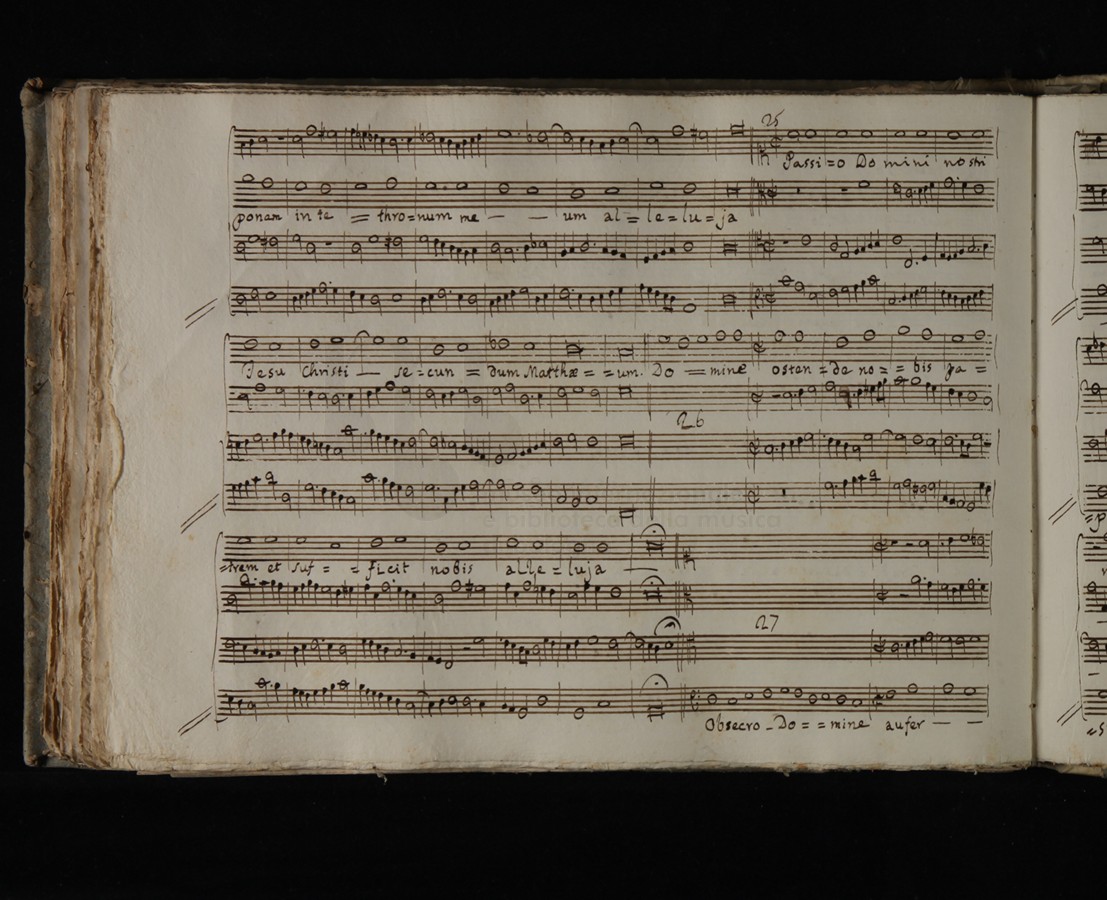 25
Passi=o Do mini nostri
ponam in te = thro=num me — — um al=le=lu=ja
Jesu Christi — se=cun = dum Matthæ = =um. Do = mine osten =de no = = bis pa =
26
=trem et suf = = ficit nobis alle = luja —
27
Obsecro - Do = = mine aufer — —
e biblioteca della musica